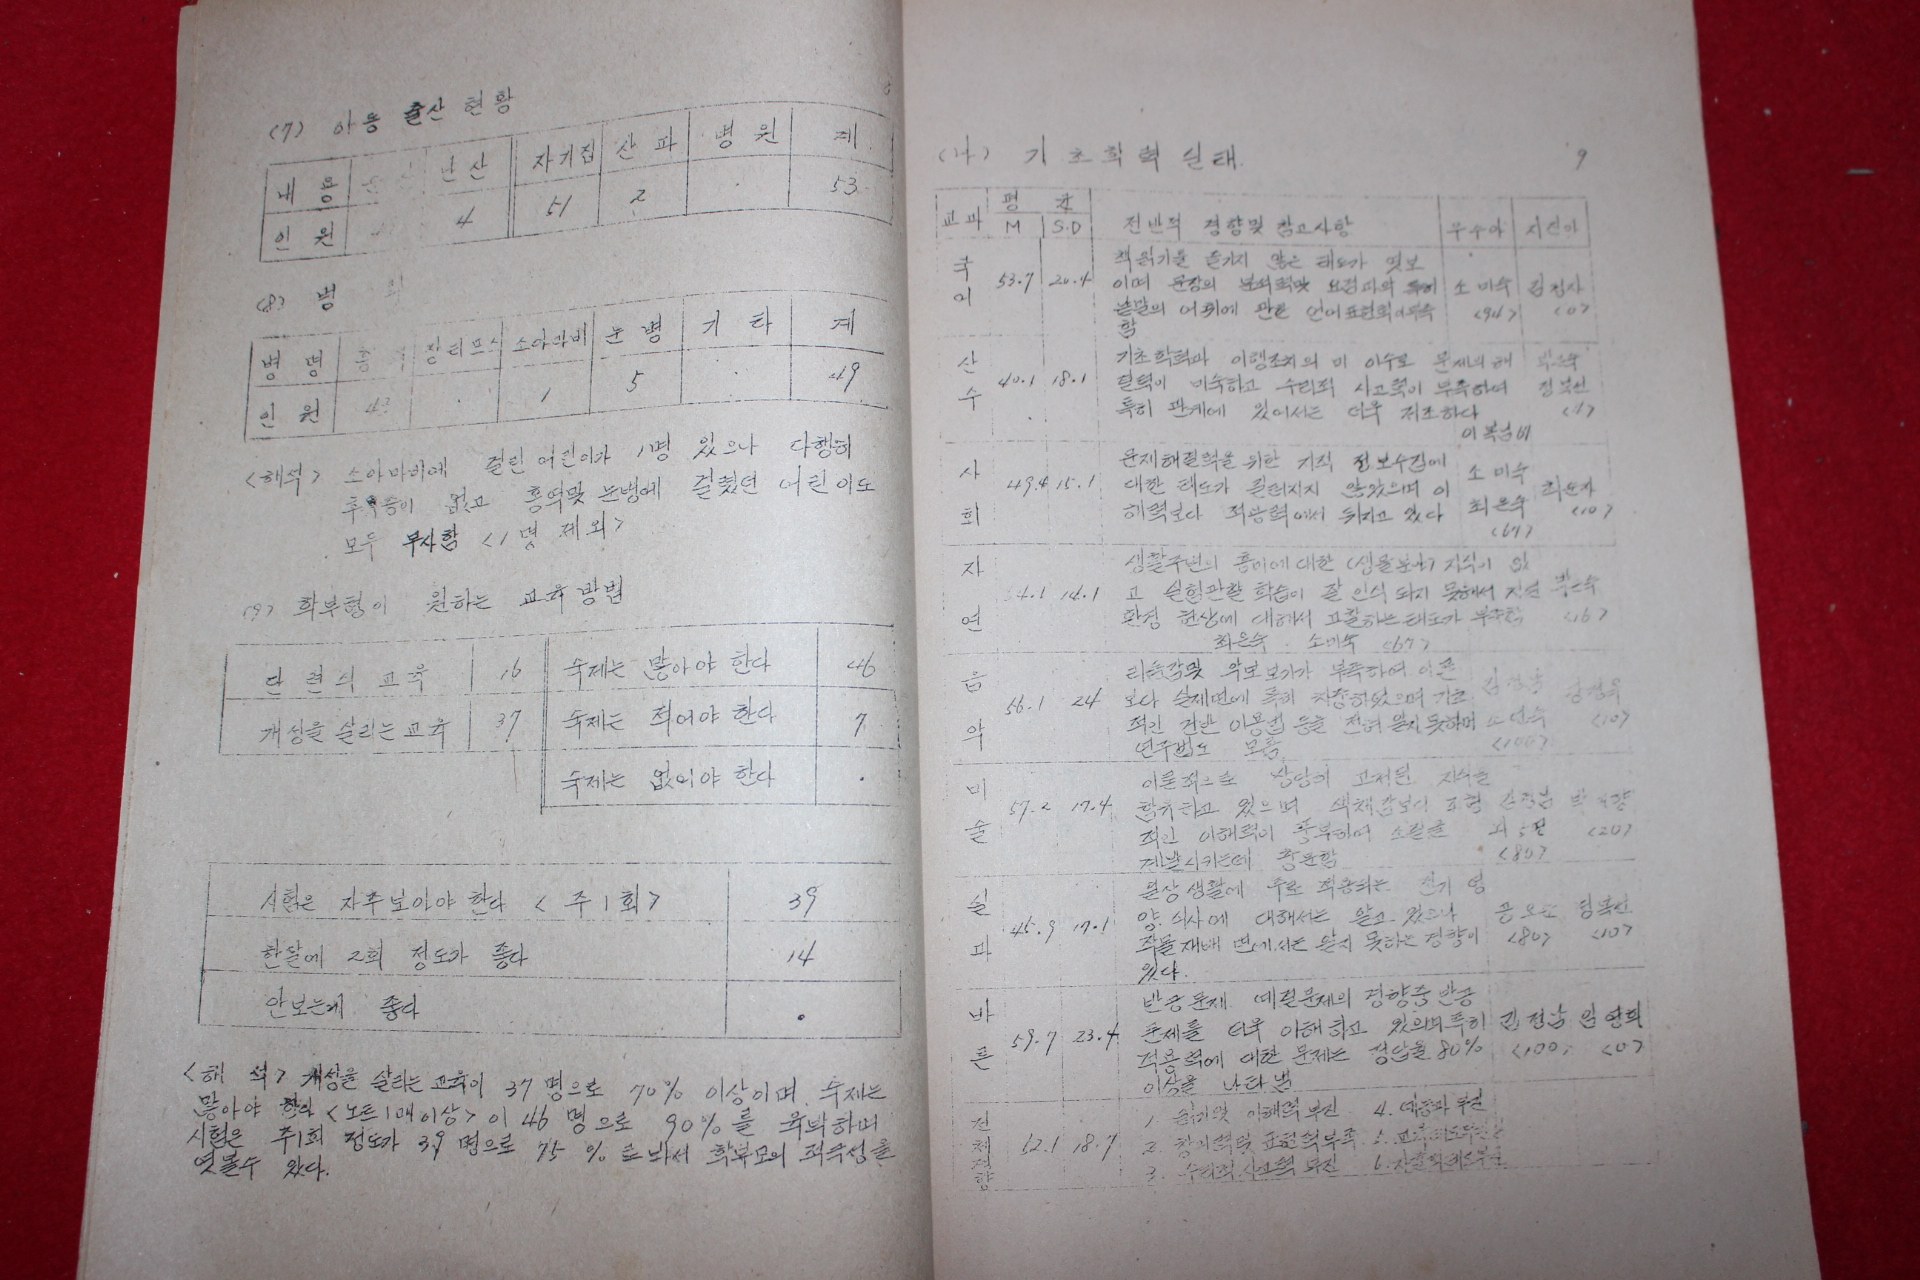 (7) 아동 출산 현황
내 용 난 산 자기집 산 파 병 원 계
인 원 4 51 2 . 53
(8) 병
병 명 소아마비 눈 병 기 타 계
인 원 . 1 5 . 49
<해석> 소아마비에 걸린 어린이가 1명 있으나 다행히
후유증이 없고 홍역및 눈병에 걸렸던 어린이도
모두 무사함 <1명 제외>
(9) 학부형이 원하는 교육방법
단련식 교육 16 숙제는 많아야 한다 46
개성을 살리는 교육 37 숙제는 적어야 한다 7
숙제는 없어야 한다 .
시험은 자주보아야 한다 <주1회> 39
한달에 2회 정도가 좋다 14
안보는게 좋다 .
<해 석> 개성을 살리는 교육이 37명으로 70% 이상이며 숙제는
많아야 한다 <노트1매이상> 이 46명으로 90%를 육박하며
시험은 주1회 정도가 39명으로 75% 로 봐서 학부모의 적극성을
엿볼수 있다.
9
(나) 기초학력 실태
교과 평 균 전반적 경향및 참고사항 우수아 지진아
M S.D
국어 53.7 20.4
책읽기를 즐기지 않은 태도가 엿보
이며 문장의 분석력및 요점파악 특히 소미숙 김점자
낱말의 어휘에 관한 언어표현력이 부족 <94> <0>
함
산수 40.1 18.1
기초학력과 이행조치의 미 이수로 문제의 해 박은숙
결력이 미숙하고 수리적 사고력이 부족하며 정복선
특히 관계에 있어서는 더욱 저조하다
사회 49.4 15.1
문제해결력을 위한 지적 정보수집에 소미숙
대한 태도가 길러지지 않았으며 이 최은숙 최순자
해력보다 적응력에서 뒤지고 있다 <67> <10>
자연 14.1
생활주변의 흥미에 대한 <생물분야> 지식이 있
고 실험관찰 학습이 잘 인식 되지 못해서 자연 박은숙
환경 현상에 대해서 고찰하는 태도가 부족함 <16>
최은숙 소미숙 <67>
음악 56.1 24
리듬감및 악보보기가 부족하며 이론
보다 실제면에 특히 치중하였으며 기초
적인 건반 이용법 등을 전혀 알지 못하며 소미숙 <10>
연주법도 모름 <100>
미술 57.2 17.4
이론적으로 상당히 고차된 지식을
함유하고 있으며 색채감보다 표현 김정남
적인 이해력이 풍부하며 소질을 <20>
계발시키는데 충분함 <80>
실과 45.9 17.1
일상생활에 주로 적용되는 전기 영
양.식사에 대해서는 알고 있으나 정복선
작물재배 면에서는 알지 못하는 경향이 <80> <10>
있다.
바른 59.7 23.4
반공문제 예절문제의 경향중 반공
문제를 더욱 이해하고 있으며 특히 김정남 임영희
적응력에 대한 문제는 정답율 80% <100> <0>
이상을 나타냄
전체경향 52.1 18.7
1. 읽기및 이해력 부진 4.
2. 창의력및 표현력부족 5.
3. 수리적 사고력 부진 6.